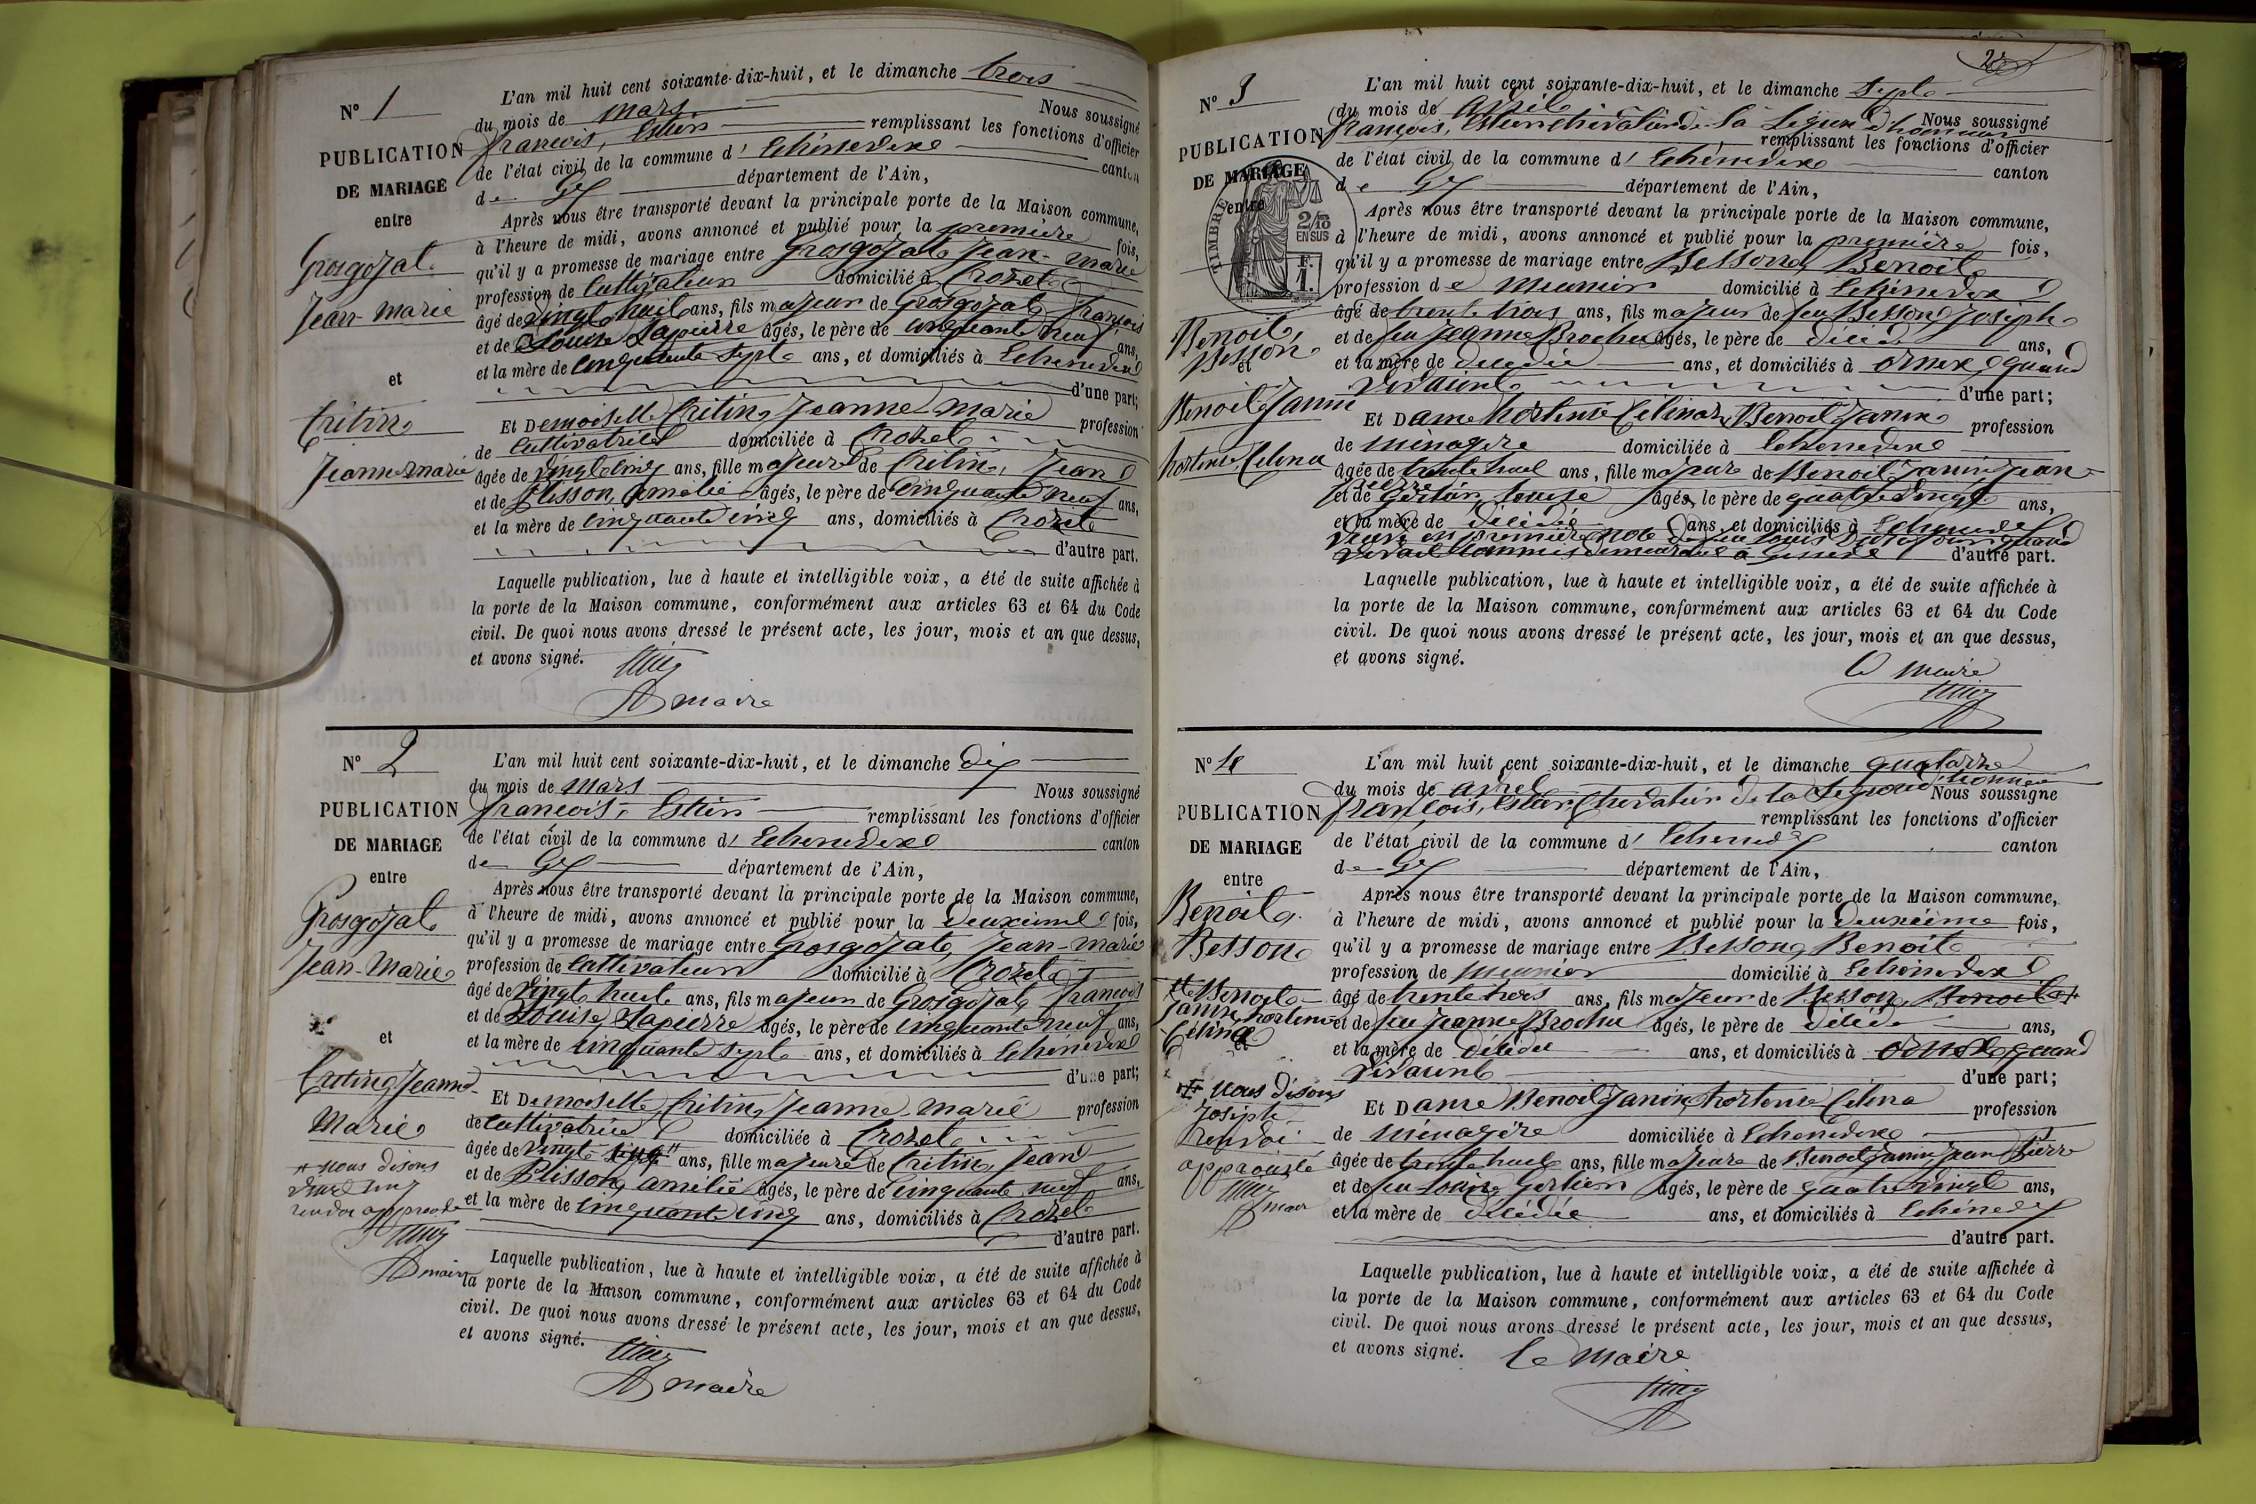 N° 1
PUBLICATION
DE MARIAGE
entre
Grosgojat
Jean-marie
et
Critin
Jeanne marie
L'an mil huit cent soixante-dix-huit, et le dimanche trois
du mois de mars Nous soussigné
françois, remplissant les fonctions d'officier
de l'état civil de la commune d' Echenevex canton
de Gex département de l'Ain,
Après nous être transporté devant la principale porte de la Maison commune,
à l'heure de midi, avons annoncé et publié pour la premiere fois,
qu'il y a promesse de mariage entre Grosgojat Jean-marie
profession de Cultivateur domicilié à Crozet
âgé de vingt huit ans, fils majeur de Grosgojat, françois
et de Louise Lapierre âgés, le père de cinquante neuf ans,
et la mère de cinquante sept ans, et domiciliés à Echenevex
d'une part;
Et Demoiselle Critin, Jeanne marie profession
de Cultivatrice domiciliée à Crozet
âgée de vingt cinq ans, fille majeure de Critin, Jean
et de Plisson, amélie âgés, le père de cinquante neuf ans,
et la mère de cinquante cinq ans, domiciliés à Crozet
d'autre part.
Laquelle publication, lue à haute et intelligible voix, a été de suite affichée à
la porte de la Maison commune, conformément aux articles 63 et 64 du Code
civil. De quoi nous avons dressé le présent acte, les jour, mois et an que dessus,
et avons signé.
maire
N° 2
PUBLICATION
DE MARIAGE
entre
Grosgojat
Jean-Marie
et
Critin, Jeanne
Marie
nous disons
vingt cinq
renvoi approuvé
maire
L'an mil huit cent soixante-dix-huit, et le dimanche dix
du mois de mars Nous soussigné
françois, remplissant les fonctions d'officier
de l'état civil de la commune d' Echenevex canton
de Gex département de l'Ain,
Après nous être transporté devant la principale porte de la Maison commune,
à l'heure de midi, avons annoncé et publié pour la deuxieme fois,
qu'il y a promesse de mariage entre Grosgojat, Jean-marie
profession de Cultivateur domicilié à Crozet
âgé de vingt huit ans, fils majeur de Grosgojat, francois
et de Louise, Lapierre âgés, le père de cinquante neuf ans,
et la mère de cinquante sept ans, et domiciliés à Echenevex
d'une part;
Et Demoiselle Critin, Jeanne-marie profession
de Cultivatrice domiciliée à Crozet
âgée de vingt cinq ans, fille majeure de Critin, Jean
et de Plisson, amélie âgés, le père de cinquante neuf ans,
et la mère de cinquante cinq ans, domiciliés à Crozet
d'autre part.
Laquelle publication, lue à haute et intelligible voix, a été de suite affichée à
la porte de la Maison commune, conformément aux articles 63 et 64 du Code
civil. De quoi nous avons dressé le présent acte, les jour, mois et an que dessus,
et avons signé.
maire
2
N° 3
PUBLICATION
DE MARIAGE
entre
TIMBRE
2/10
EN SUS
F.
1.
Benoit,
Besson
et
Benoit Janin
hortense Celina
L'an mil huit cent soixante-dix-huit, et le dimanche sept
du mois de avril Nous soussigné
françois, chevalier de la Légion d'honneur remplissant les fonctions d'officier
de l'état civil de la commune d' Echenevex canton
de Gex département de l'Ain,
Après nous être transporté devant la principale porte de la Maison commune,
à l'heure de midi, avons annoncé et publié pour la première fois,
qu'il y a promesse de mariage entre Besson, Benoit
profession de meunier domicilié à Echenevex
âgé de trente trois ans, fils majeur de feu Besson, Joseph
et de feu Jeanne Brochu âgés, le père de décédé ans,
et la mère de décédée ans, et domiciliés à ornex quand
vivaint d'une part;
Et Dame hortense Celina Benoit Janin profession
de ménagère domiciliée à Echenevex
âgée de trente huit ans, fille majeure de Benoit Janin, Jean
pierre
et de louise âgés, le père de quatre vingt ans,
et la mère de décédée ans, et domiciliés à Echenevex
veuve en première noce de feu louis quand
vivait commis demeurant à d'autre part.
Laquelle publication, lue à haute et intelligible voix, a été de suite affichée à
la porte de la Maison commune, conformément aux articles 63 et 64 du Code
civil. De quoi nous avons dressé le présent acte, les jour, mois et an que dessus,
et avons signé.
le maire
N° 4
PUBLICATION
DE MARIAGE
entre
Benoit
Besson
et Benoit
Janin hortense
Célina
et
nous disons
Joseph
renvoi
approuvé
maire
L'an mil huit cent soixante-dix-huit, et le dimanche quatorze
du mois de avril Nous soussigné
françois, chevalier de la Légion d'honneur remplissant les fonctions d'officier
de l'état civil de la commune d' Echenevex canton
de Gex département de l'Ain,
Après nous être transporté devant la principale porte de la Maison commune,
à l'heure de midi, avons annoncé et publié pour la deuxième fois,
qu'il y a promesse de mariage entre Besson, Benoit
profession de meunier domicilié à Echenevex
âgé de trente trois ans, fils majeur de Besson, Benoit
et de feu Jeanne Brochu âgés, le père de décédé ans,
et la mère de décédée ans, et domiciliés à ornex quand
vivaint d'une part;
Et Dame Benoit Janin, hortense Célina profession
de ménagère domiciliée à Echenevex
âgée de trente huit ans, fille majeure de Benoit Janin Jean Pierre
et de feu louise âgés, le père de quatre vingt ans,
et la mère de décédée ans, et domiciliés à Echenevex
d'autre part.
Laquelle publication, lue à haute et intelligible voix, a été de suite affichée à
la porte de la Maison commune, conformément aux articles 63 et 64 du Code
civil. De quoi nous avons dressé le présent acte, les jour, mois et an que dessus,
et avons signé.
le maire